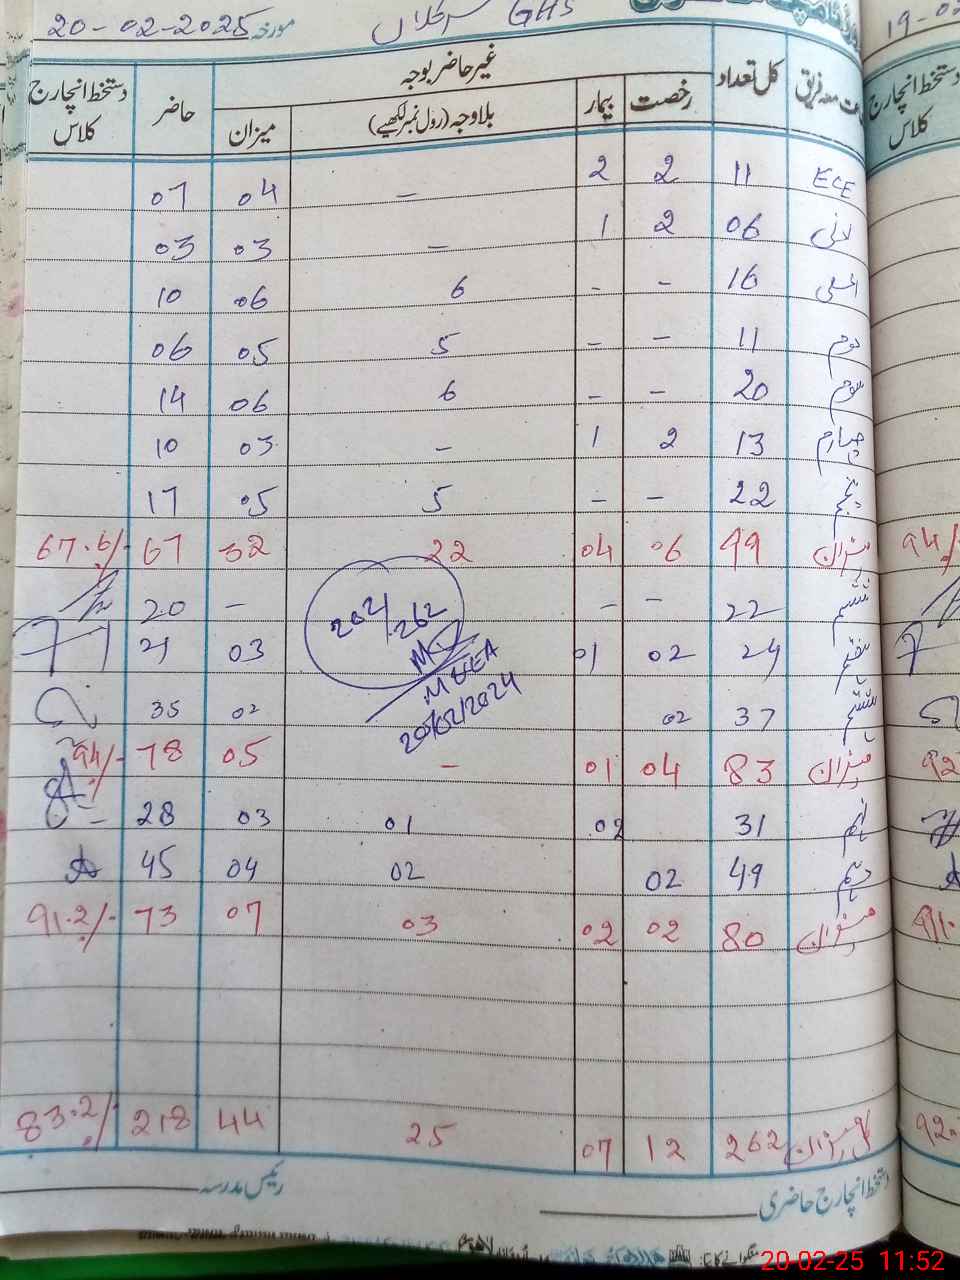 مورخہ 20-02-2025 سرکلاں GHS
جماعت معہ فریق کل تعداد غیر حاضر بوجہ حاضر دستخط انچارج کلاس
رخصت بیمار بلاوجہ (رول نمبر لکھیے) میزان
ECE 11 2 2 – 04 07
ادنیٰ 06 2 1 – 03 03
اعلیٰ 16 - - 6 06 10
دوم 11 – – 5 05 06
سوم 20 – – 6 06 14
چہارم 13 2 1 – 03 10
پنجم 22 – – 5 05 17
میزان 99 06 04 22 32 67 67.6/.
ششم 22 – – – 20
ہفتم 24 02 01 03 21
ہشتم 37 02 02 35
میزان 83 04 01 – 05 78 94/.
نہم 31 02 01 03 28
دہم 49 02 02 04 45
میزان 80 02 02 03 07 73 91.2/.
202/262
MEEA
20/02/2024
کل میزان 262 12 07 25 44 218 83.2/.
دستخط انچارج حاضری رئیس مدرسہ
19-02
دستخط انچارج کلاس
94/.
92
91.
92.
20-02-25 11:52